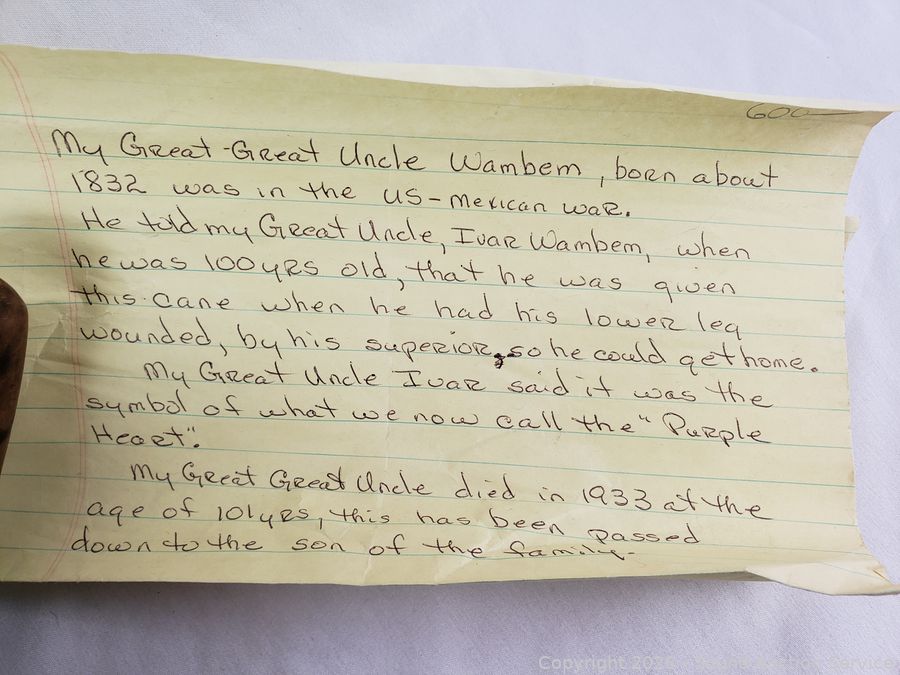 600
My Great-Great Uncle Wambem, born about
1832 was in the US-Mexican war.
He told my Great Uncle, Ivar Wambem, when
he was 100yrs old, that he was given
this cane when he had his lower leg
wounded, by his superior, so he could get home.
My Great Uncle Ivar said it was the
symbol of what we now call the "Purple
Heart".
My Great Great Uncle died in 1933 at the
age of 101yrs, this has been passed
down to the son of the family.
Copyright Auction Service